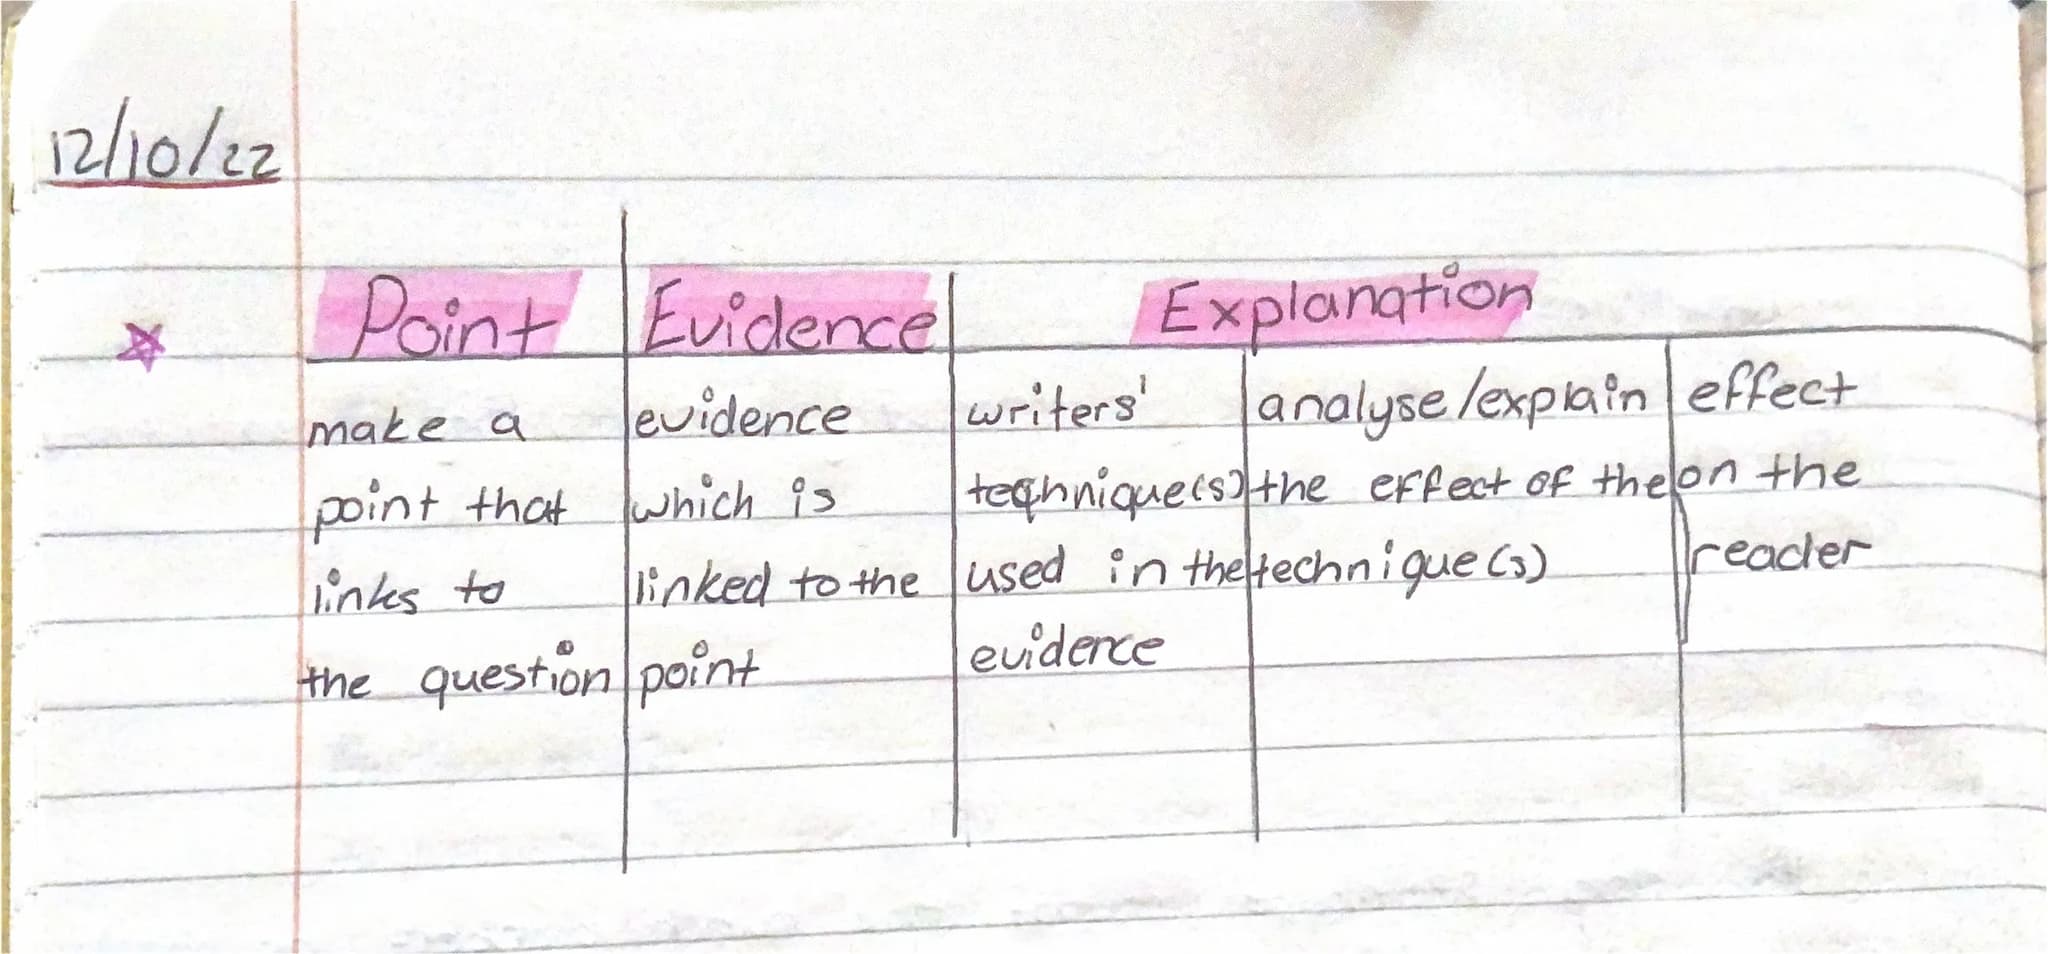 12/10/22
Point Evidence Explanation
make a evidence writers' analyse/explain effect
point that which is technique(s) the effect of the on the
links to linked to the used in the technique(s) reader
the question point evidence